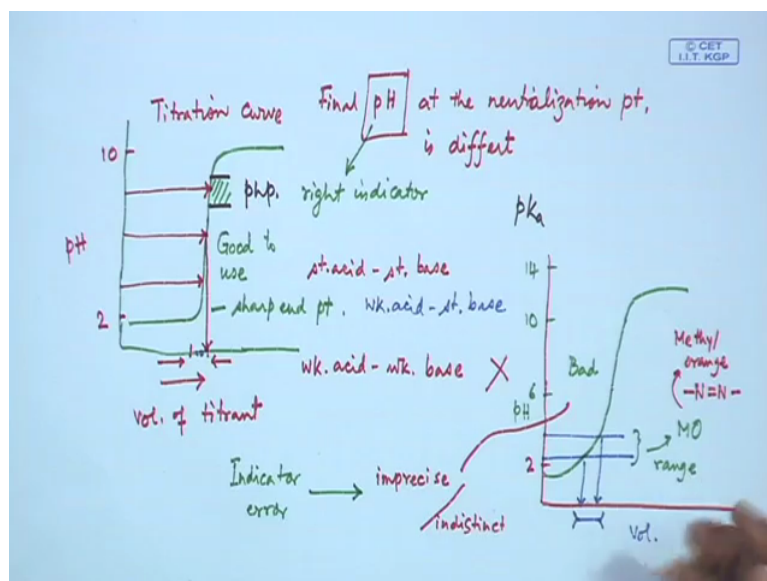 © CET
I.I.T. KGP
Titration curve
Final pH at the neutralization pt.
is diffent
10
php.
right indicator
pH
Good to
use
st. acid - st. base
2
sharp end pt.
wk. acid - st. base
wk. acid - wk. base X
vol. of titrant
Indicator
error
imprecise
indistinct
pKa
14
10
6
pH
2
Bad
Methyl
orange
-N=N-
MO
range
Vol.